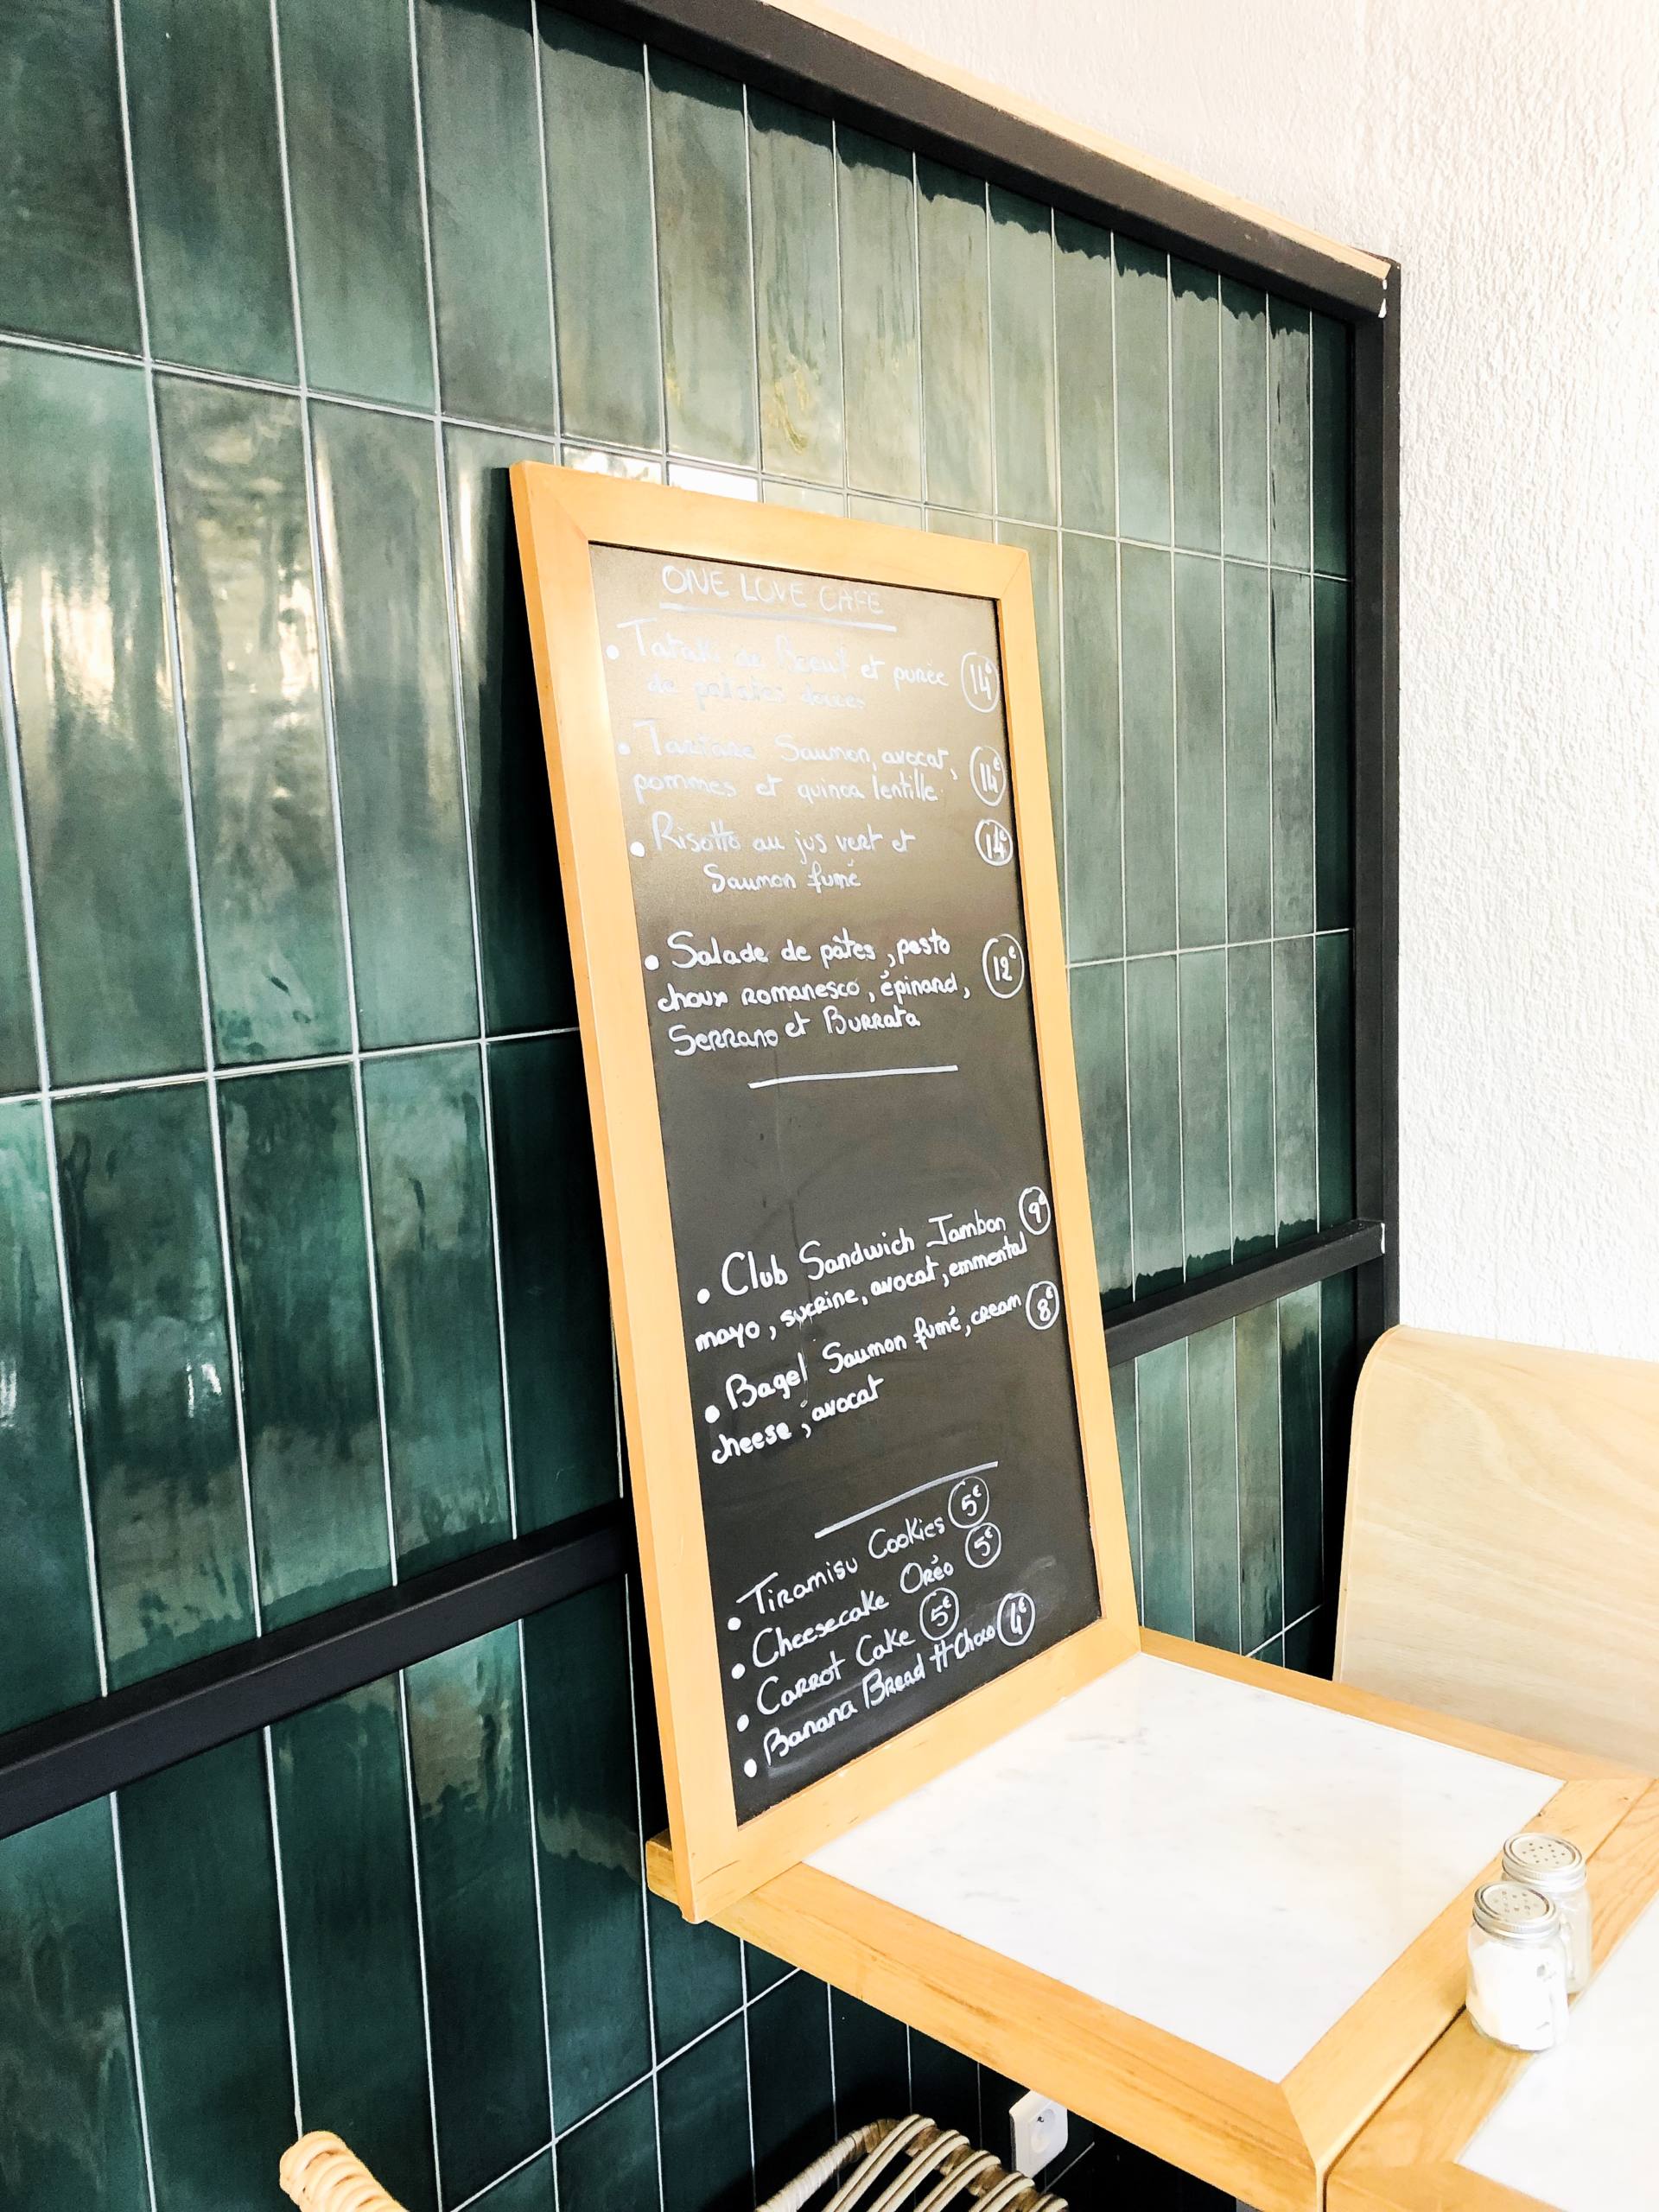 ONE LOVE CAFE
• Tataki de Boeuf et purée 14€
de patates douces
• Tartare Saumon, avocat, 14€
pommes et quinoa lentille
• Risotto au jus vert et 14€
Saumon fumé
• Salade de pâtes, pesto 12€
choux romanesco, épinard,
Serrano et Burrata
• Club Sandwich Jambon 9€
mayo, sucrine, avocat, emmental
• Bagel Saumon fumé, cream 8€
cheese, avocat
• Tiramisu Cookies 5€
• Cheesecake Oréo 5€
• Carrot Cake 5€
• Banana Bread Choco 4€